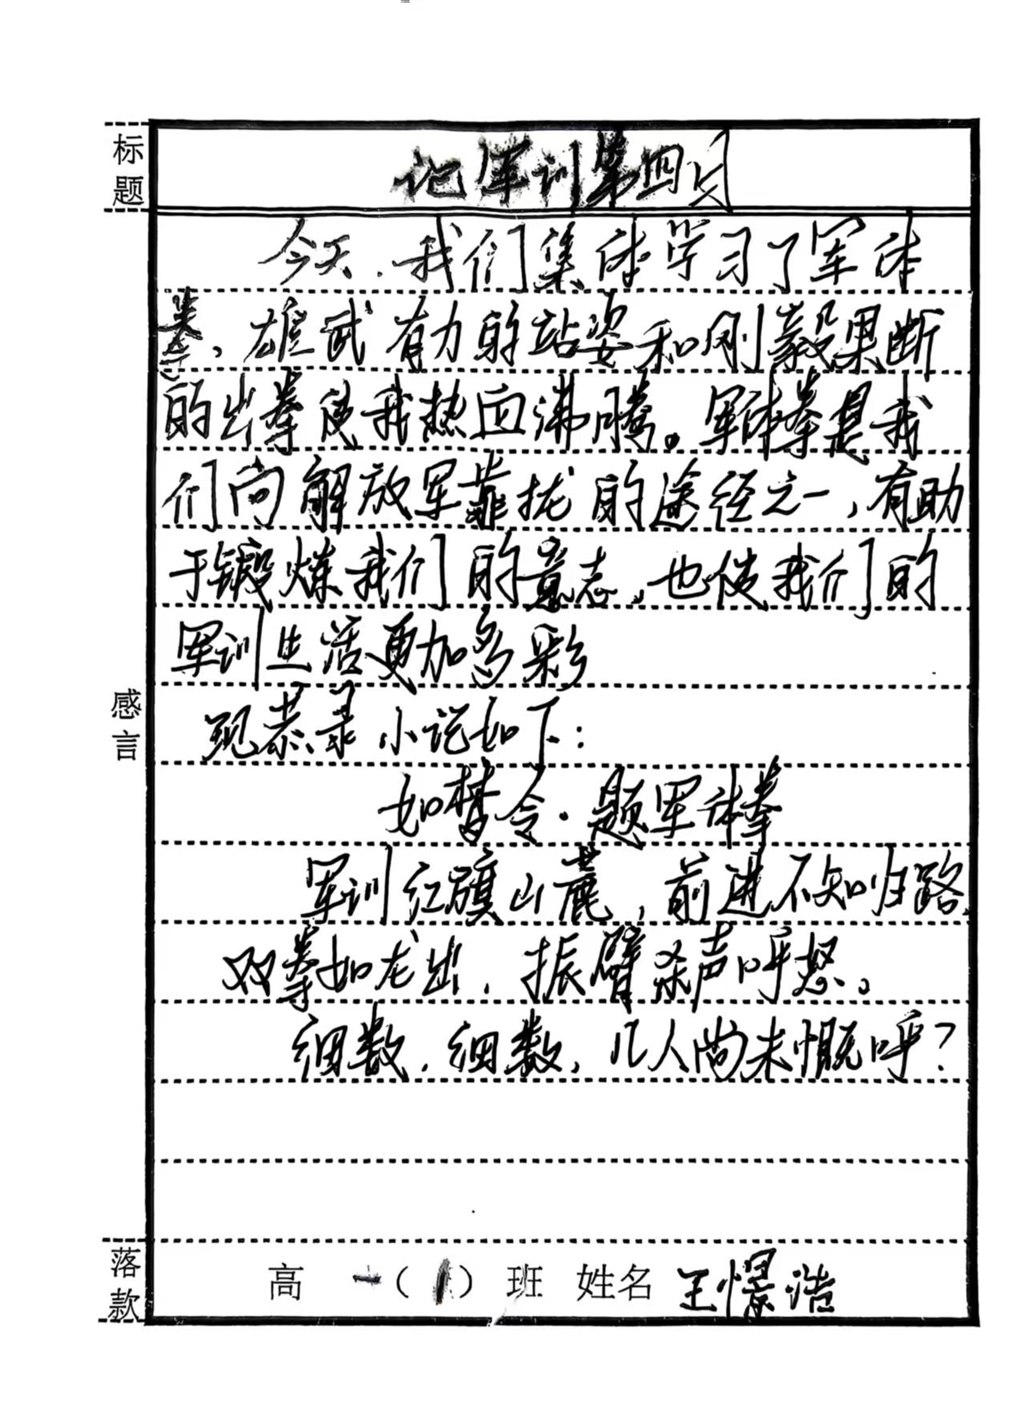 标题
记军训第四日
今天，我们集体学习了军体
拳，雄武有力的站姿和刚毅果断
的出拳使我热血沸腾。军体拳是我
们向解放军靠拢的途径之一，有助
于锻炼我们的意志，也使我们的
军训生活更加多彩
感言
现恭录小说如下：
如梦令·题军体拳
军训红旗山麓，前进不知归路
双拳如龙出，振臂杀声呼怒。
细数，细数，几人尚未慨呼？
落款
高一（1）班 姓名 王憬浩